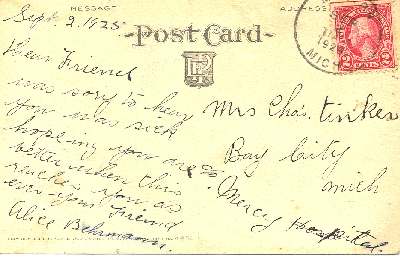 MESSAGE
ADDRESS
Sept. 2, 1925
Post Card
Dear Friend
was sorry to hear
you was sick
hoping you are
better when this
reaches you as
ever your Friend
Alice
Mrs Chas. Tinker
Bay City
Mich
% Mercy Hospital.
MICH
2 CENTS 2